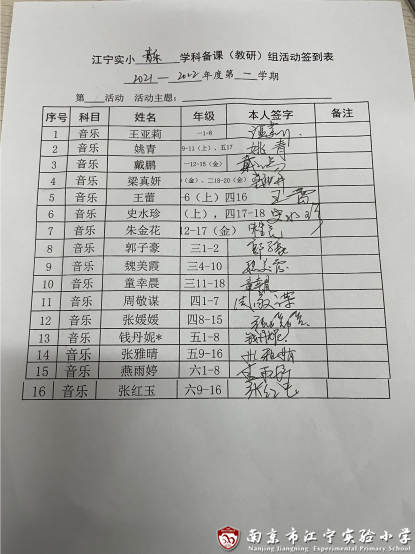 江宁实小 音乐 学科备课（教研）组活动签到表
2021—2022年度第一学期
第 活动 活动主题：
序号 科目 姓名 年级 本人签字 备注
1 音乐 王亚莉 一1-8
2 音乐 姚青 9-11（上），五17 姚青
3 音乐 戴鹏 一12-15（金） 戴鹏
4 音乐 梁真妍 （金），二18-20（金）
5 音乐 王蕾 -6（上）四16 王蕾
6 音乐 史水珍 （上），四17-18 史水珍
7 音乐 朱金花 12-17（金）
8 音乐 郭子豪 三1-2
9 音乐 魏美霞 三4-10 魏美霞
10 音乐 童幸晨 三11-18 童幸晨
11 音乐 周敬谋 四1-7 周敬谋
12 音乐 张媛媛 四8-15 张媛媛
13 音乐 钱丹妮* 五1-8 钱丹妮
14 音乐 张雅晴 五9-16 张雅晴
15 音乐 燕雨婷 六1-8
16 音乐 张红玉 六9-16 张红玉
南京市江宁实验小学
Nanjing Jiangning Experimental Primary School